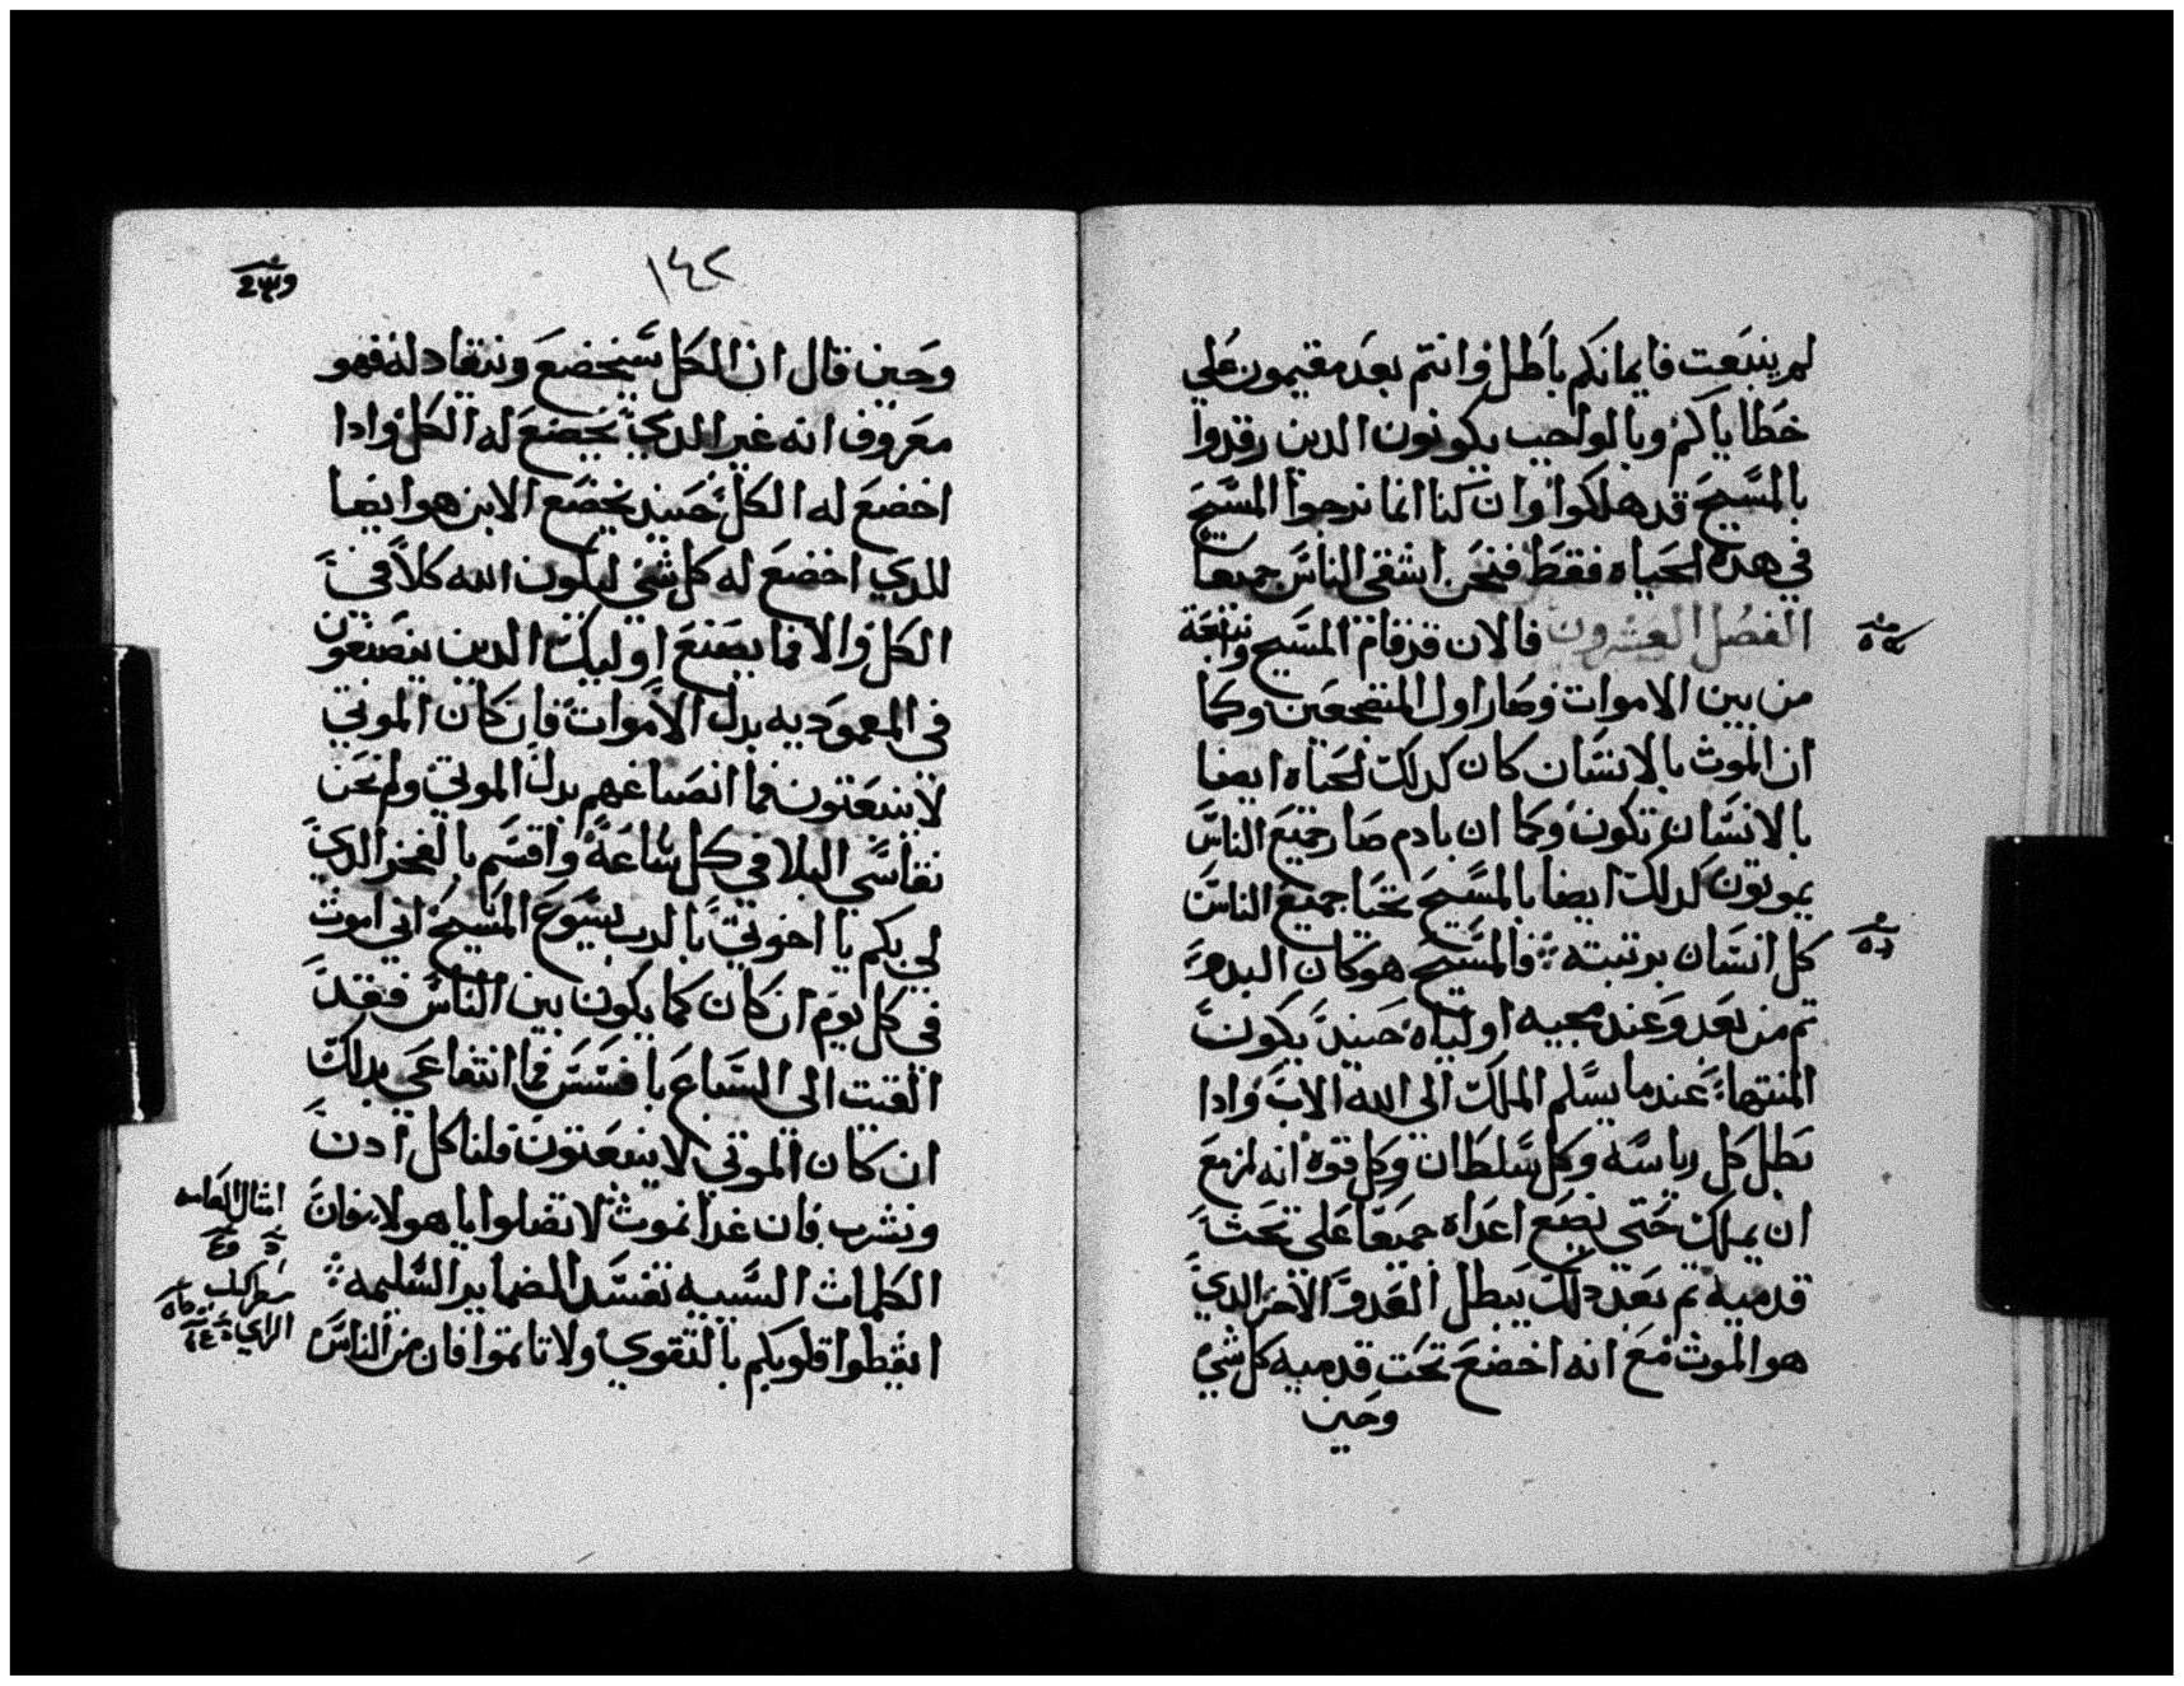 لم ينبعت فايمانكم باطل وانتم بعد مقيمون علي
خطاياكم وبالواجب يكونون الدين رقدوا
بالمسيح قد هلكوا وان كنا انما نرجوا المسيح
في هده الحياه فقط فنحن اشقى الناس جميعا
الفصل العشرون فالان قد قام المسيح
من بين الاموات وصار اول المنضجعين وكما
ان الموت بالانسان كان كدلك الحياه ايضا
بالانسان تكون وكما ان بادم صار جميع الناس
يموتون كدلك ايضا بالمسيح تحيا جميع الناس
كل انسان برتبته فالمسيح هو كان البدو
تم من بعد وعند مجييه اولياه حينيد يكون
المنتها عندما يسلم الملك الى الله الاب وادا
بطل كل رياسه وكل سلطان وكل قوه انه لمزمع
ان يملك حتى يضع اعداه جميعا على تحت
قدميه تم بعد دلك يبطل العدو الاخر الدي
هو الموت مع انه اخضع تحت قدميه كل شي
وحين
١٤٢
وحين قال ان الكل سيخضع وينقاد له فهو
معروف انه غير الدي يخضع له الكل وادا
اخضع له الكل حينيد يخضع الابن هو ايضا
للدي اخضع له كل شي ليكون الله كلا في
الكل والا فما يصنع اوليك الدين ينصبغون
في المعموديه بدل الاموات فان كان الموتي
لا ينبعتون فما انصباغهم بدل الموتي ولم نحن
نقاسي البلا في كل ساعة واقسم بالفخر الدي
لي بكم يا اخوتي بالرب يسوع المسيح اني اموت
في كل يوم ان كان كما يكون بين الناس فقد
القيت الي السباع بافسس فما انتفاعي بدلك
ان كان الموتي لا ينبعتون فلناكل ادن
ونشرب فان غدا نموت لا تضلوا يا هولا فان
الكلمات السييه تفسد الضماير السليمه
ايقظوا قلوبكم بالتقوي ولا تاتموا فان من الناس